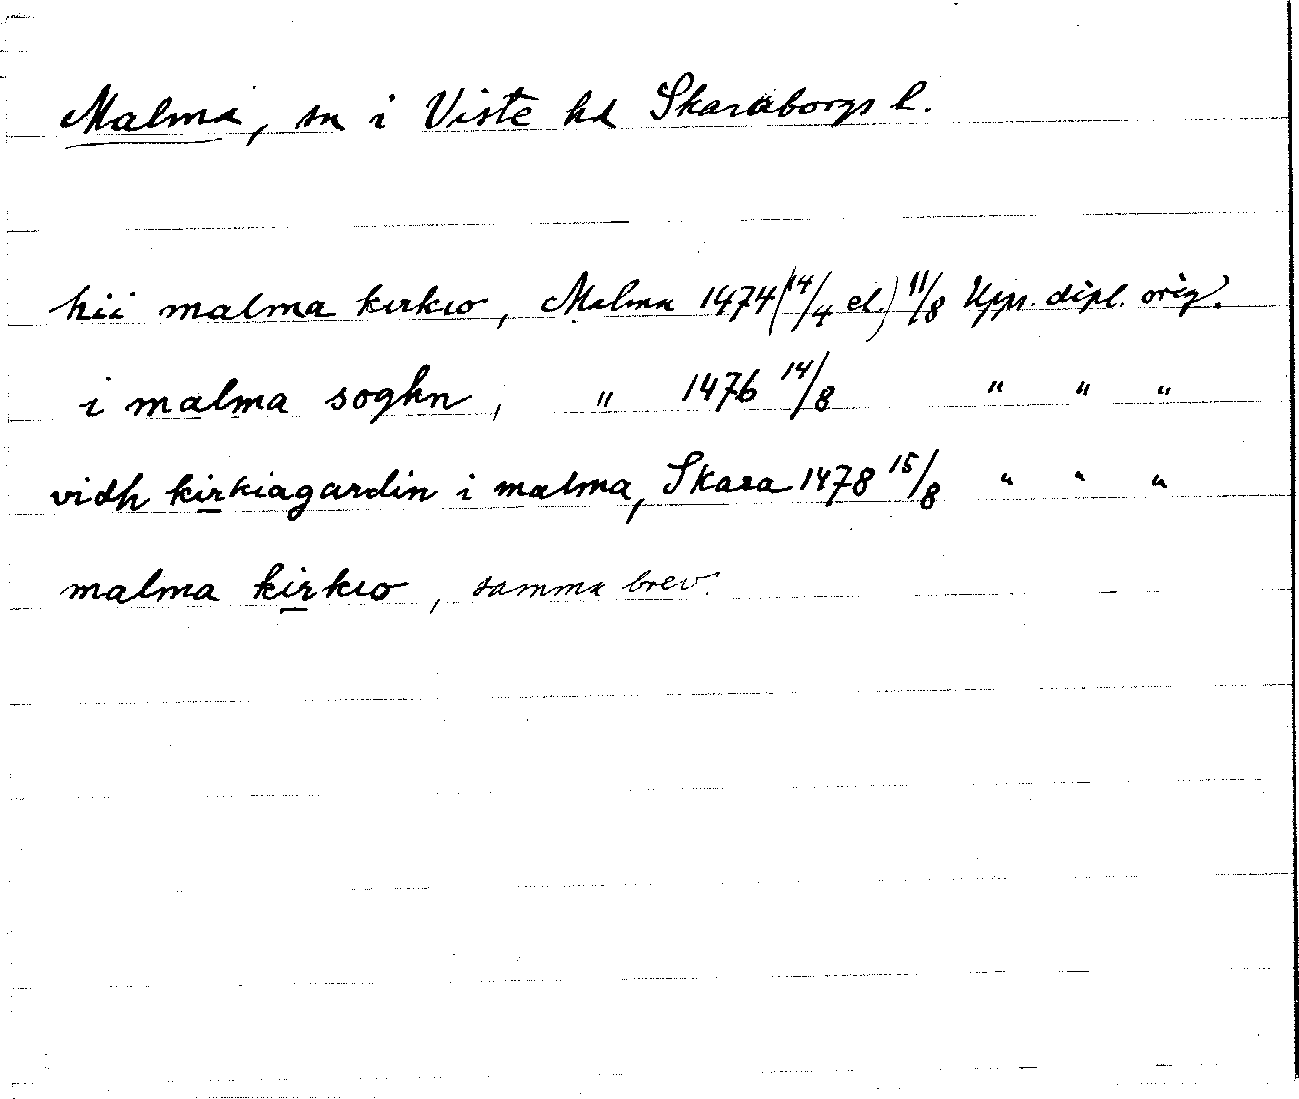 Malma, sn i Viste hd Skaraborgs l.
hii malma kirkio, Malma 1474 (14/4 el.) 11/8 Upps. dipl. orig.
i malma soghn, " 1476 14/8 " " "
vidh kirkiagardin i malma, Skara 1478 15/8 " " "
malma kirkio, samma brev.